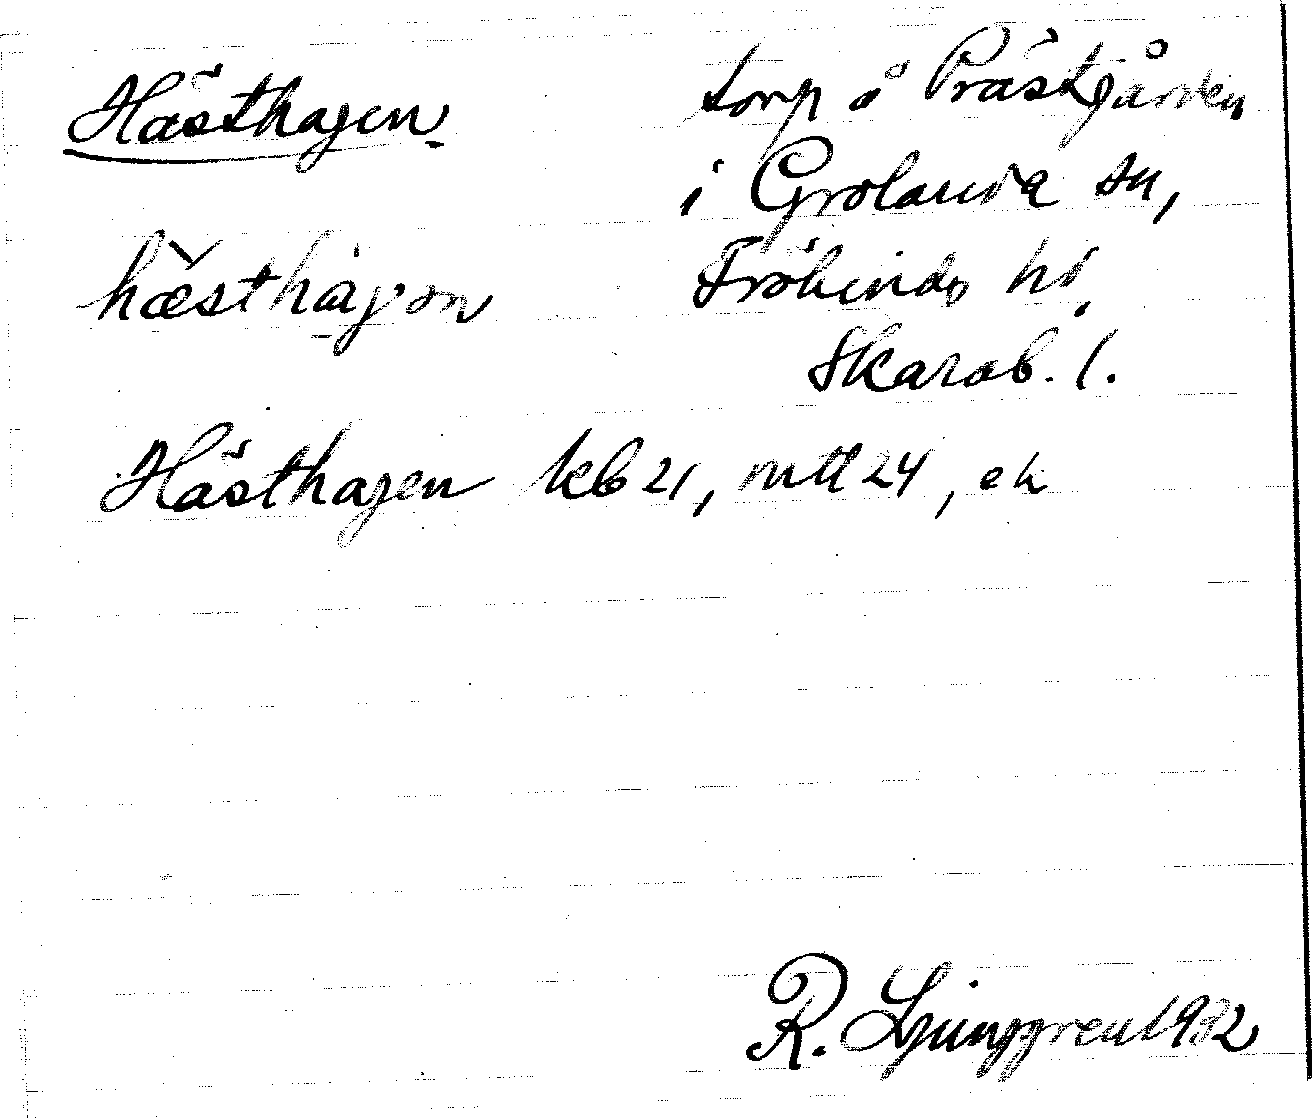 Hästhagen
torp å Prästgården
i Grolanda sn,
Frökinds hd,
Skarab. l.
hæsthagən
Hästhagen kb 21, mtl 24, ek
R. Ljunggren 1932